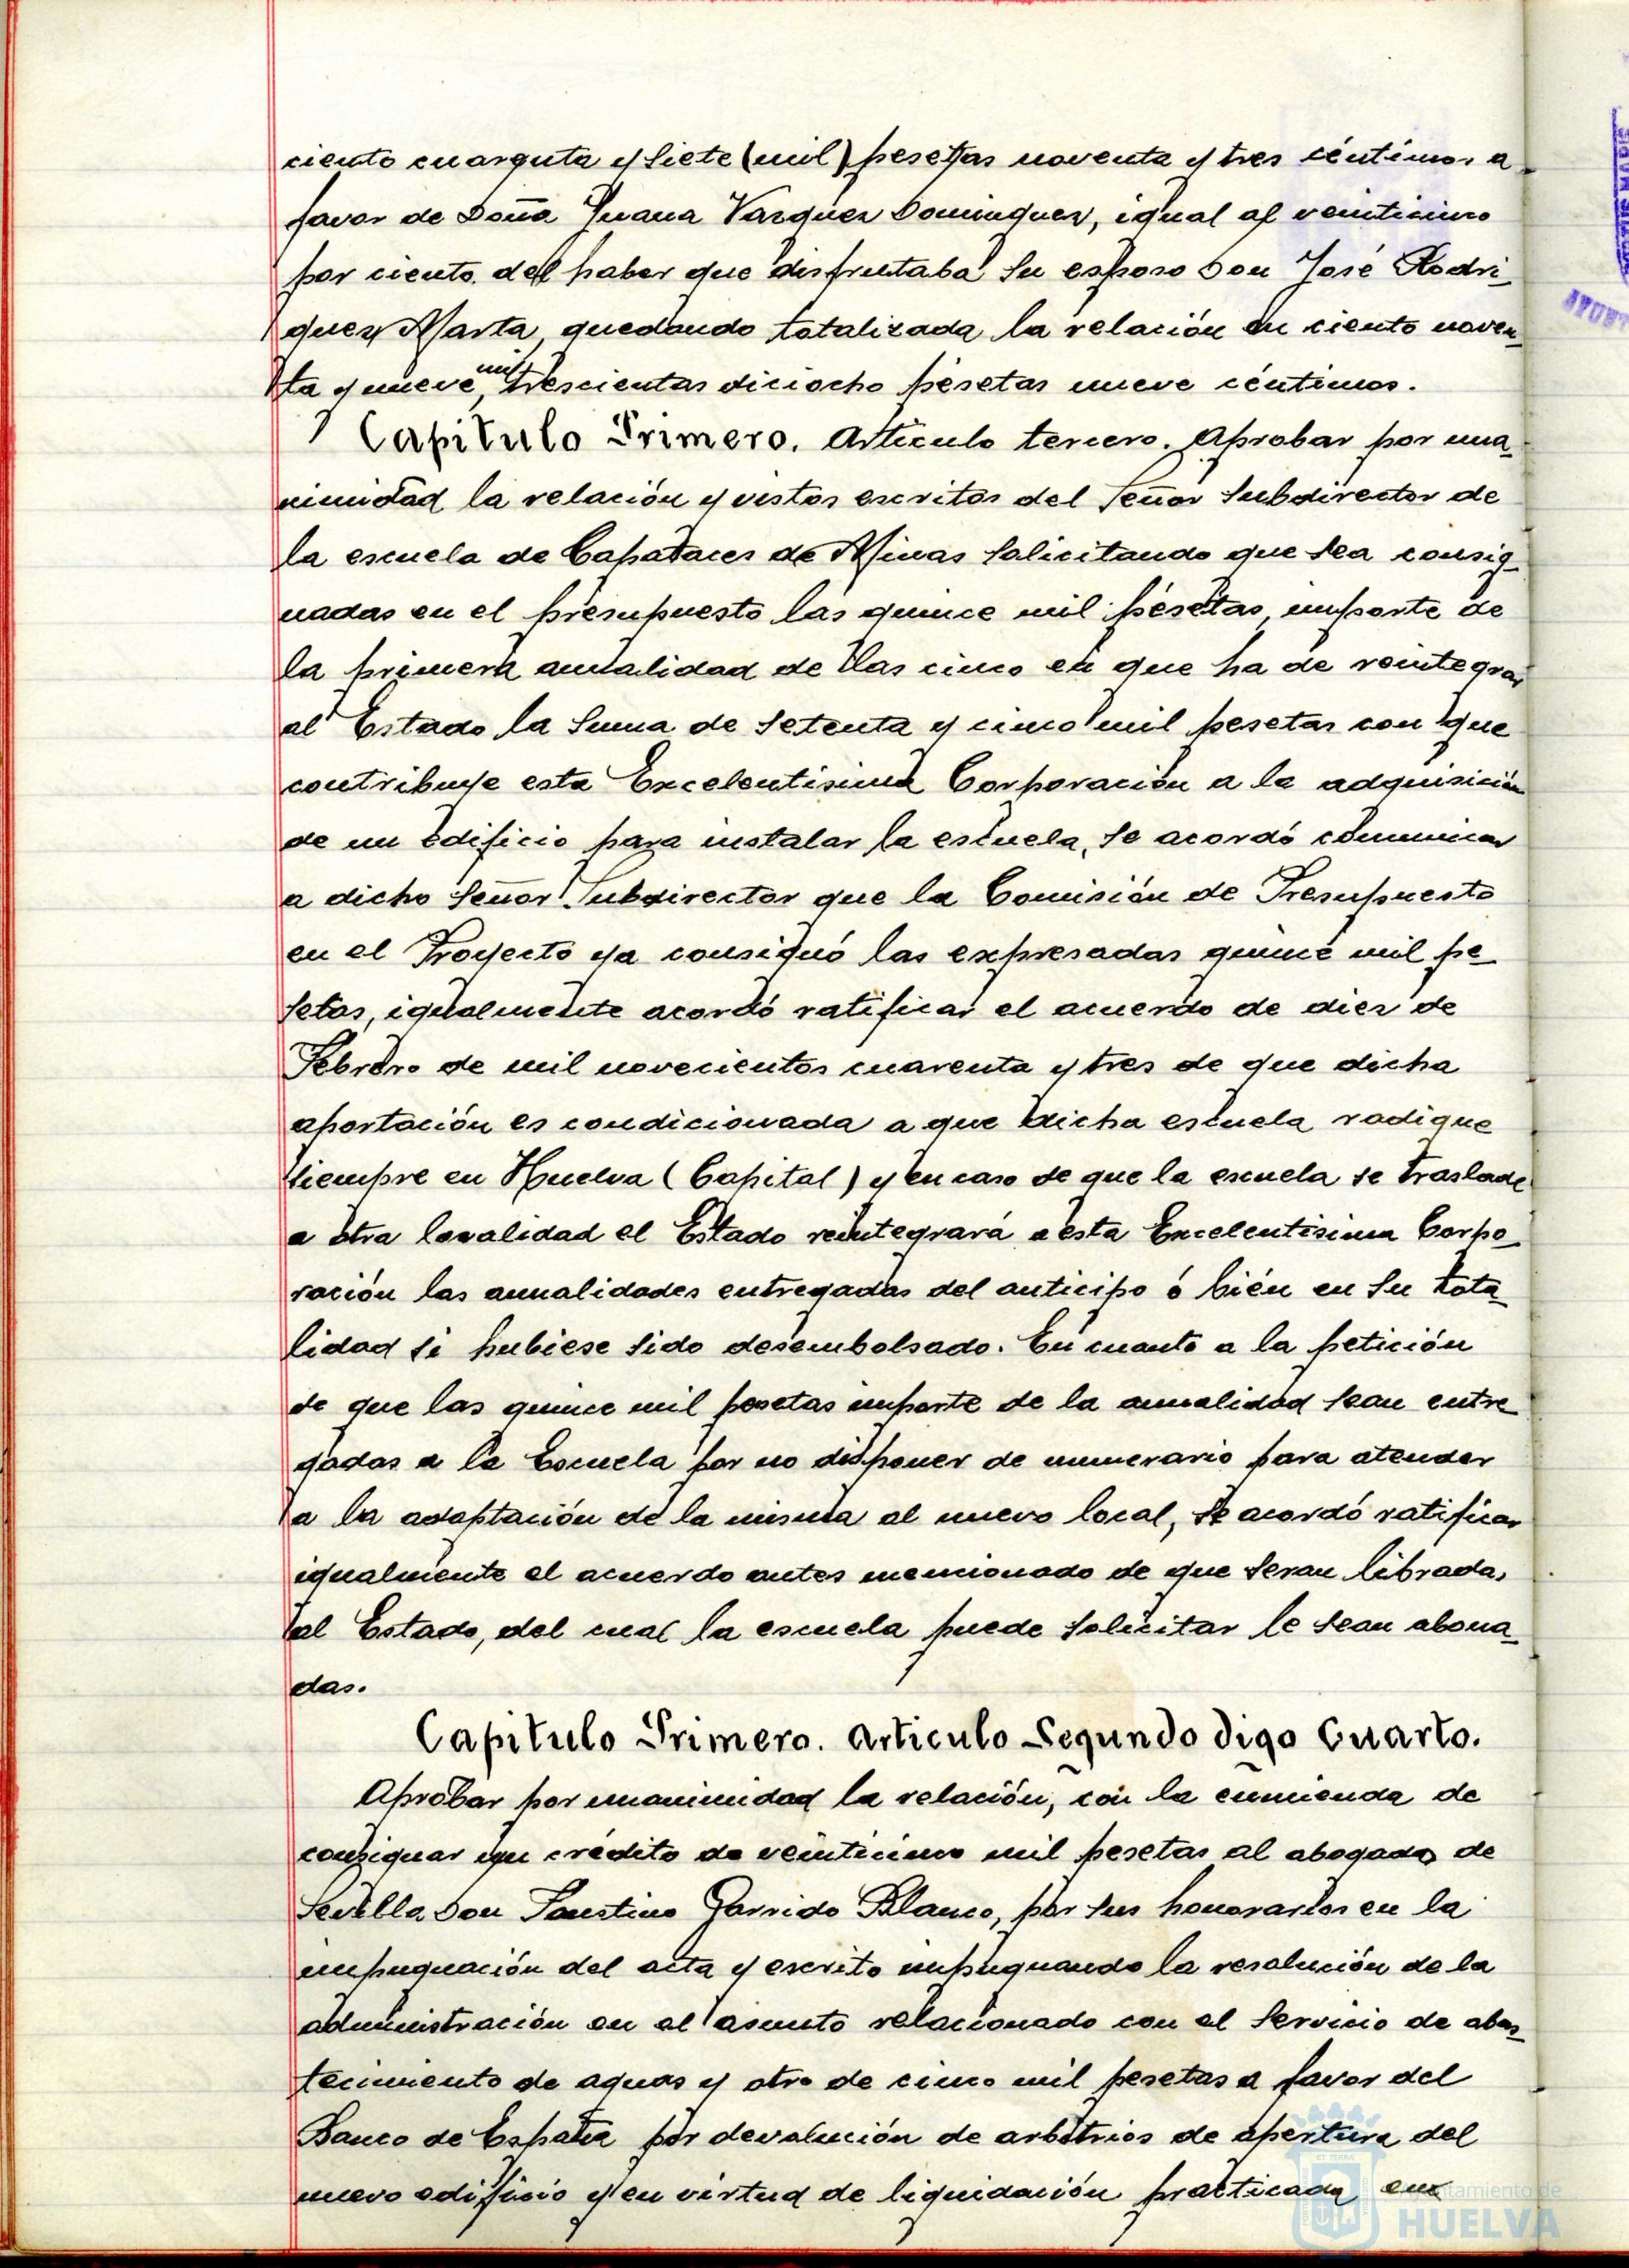 ciento cuarenta y siete (mil) pesetas noventa y tres céntimos a
favor de Doña Juana Vazquez Dominguez, igual al veinticinco
por ciento del haber que disfrutaba su esposo Don José Rodri-
guez Marta, quedando totalizada la relación en ciento noven-
ta y nueve mil trescientas dieciocho pesetas nueve céntimos.
Capitulo Primero. Articulo tercero. Aprobar por una-
nimidad la relación y vistos escritos del Señor Subdirector de
la escuela de Capataces de Minas solicitando que sea consig-
nadas en el presupuesto las quince mil pesetas, importe de
la primera anualidad de las cinco en que ha de reintegrar
al Estado la suma de setenta y cinco mil pesetas con que
contribuye esta Excelentisima Corporación a la adquisición
de un edificio para instalar la escuela, se acordó comunicar
a dicho Señor Subdirector que la Comisión de Presupuesto
en el Proyecto ya consignó las expresadas quince mil pe-
setas, igualmente acordó ratificar el acuerdo de diez de
Febrero de mil novecientos cuarenta y tres de que dicha
aportación es condicionada a que dicha escuela radique
siempre en Huelva (Capital) y en caso de que la escuela se traslade
a otra localidad el Estado reintegrará a esta Excelentisima Corpo-
ración las anualidades entregadas del anticipo ó bién en su tota-
lidad si hubiese sido desembolsado. En cuanto a la petición
de que las quince mil pesetas importe de la anualidad sean entre-
gadas a la Escuela por no disponer de numerario para atender
a la adaptación de la misma al nuevo local, se acordó ratificar
igualmente el acuerdo antes mencionado de que seran libradas
al Estado, del cual la escuela puede solicitar le sean abona-
das.
Capitulo Primero. Articulo Segundo digo Cuarto.
Aprobar por unanimidad la relación, con la enmienda de
consignar un crédito de veinticinco mil pesetas al abogado de
Sevilla Don Faustino Garrido Blanco, por sus honorarios en la
impugnación del acta y escrito impugnando la resolución de la
administración en el asunto relacionado con el servicio de abas-
tecimiento de aguas y otro de cinco mil pesetas a favor del
Banco de España por devolución de arbitrios de apertura del
nuevo edificio y en virtud de liquidación practicada en
Ayuntamiento de
HUELVA